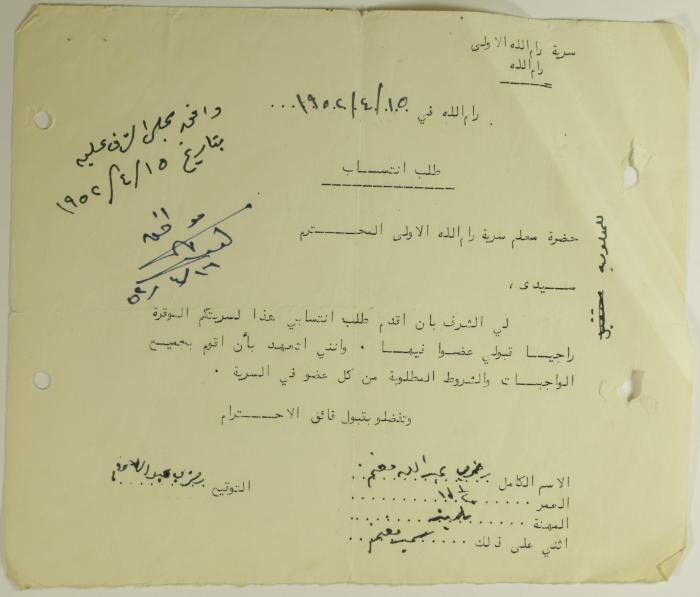 سرية رام الله الاولى
رام الله
رام الله في ١٩٥٢/٤/١٥
وافق مجلس الشرف عليه
بتاريخ ١٩٥٢/٤/١٥
طلب انتساب
موافق
٥٢/٤/١٦
حضرة معلم سرية رام الله الاولى المحترم
سيدى ،
لي الشرف بان اقدم طلب انتسابي هذا لسريتكم الموقرة
راجيا قبولي عضوا فيها . وانني اتعهد بأن اقوم بجميع
الواجبات والشروط المطلوبة من كل عضو في السرية .
وتفضلو بقبول فائق الاحترام
الاسم الكامل عبدالله مغنم
التوقيع
العمر
المهنة
اثني على ذلك مغنم